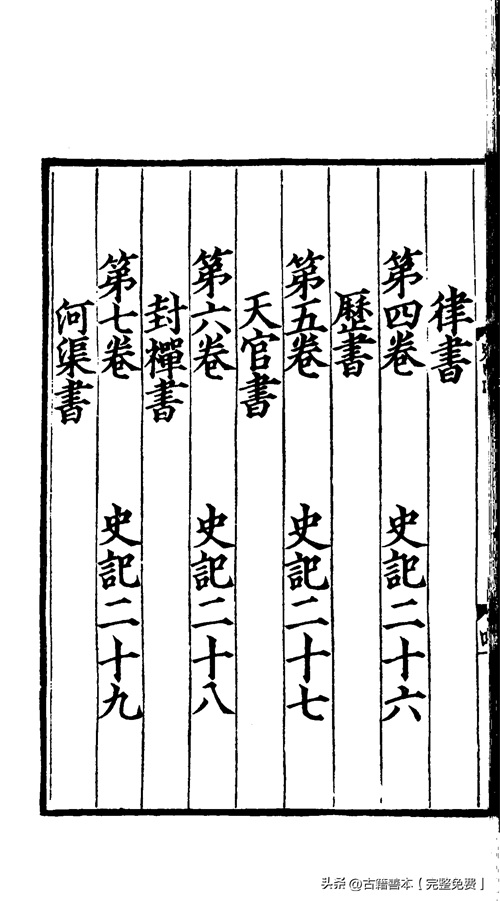 律書
第四卷 史記二十六
歷書
第五卷 史記二十七
天官書
第六卷 史記二十八
封禪書
第七卷 史記二十九
河渠書
头条 @古籍善本【完整免费】